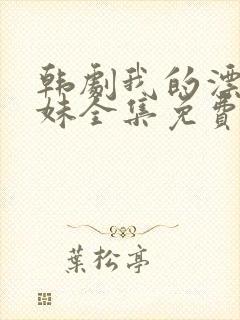 韩劇我的漂
妹全集免費
葉松亭